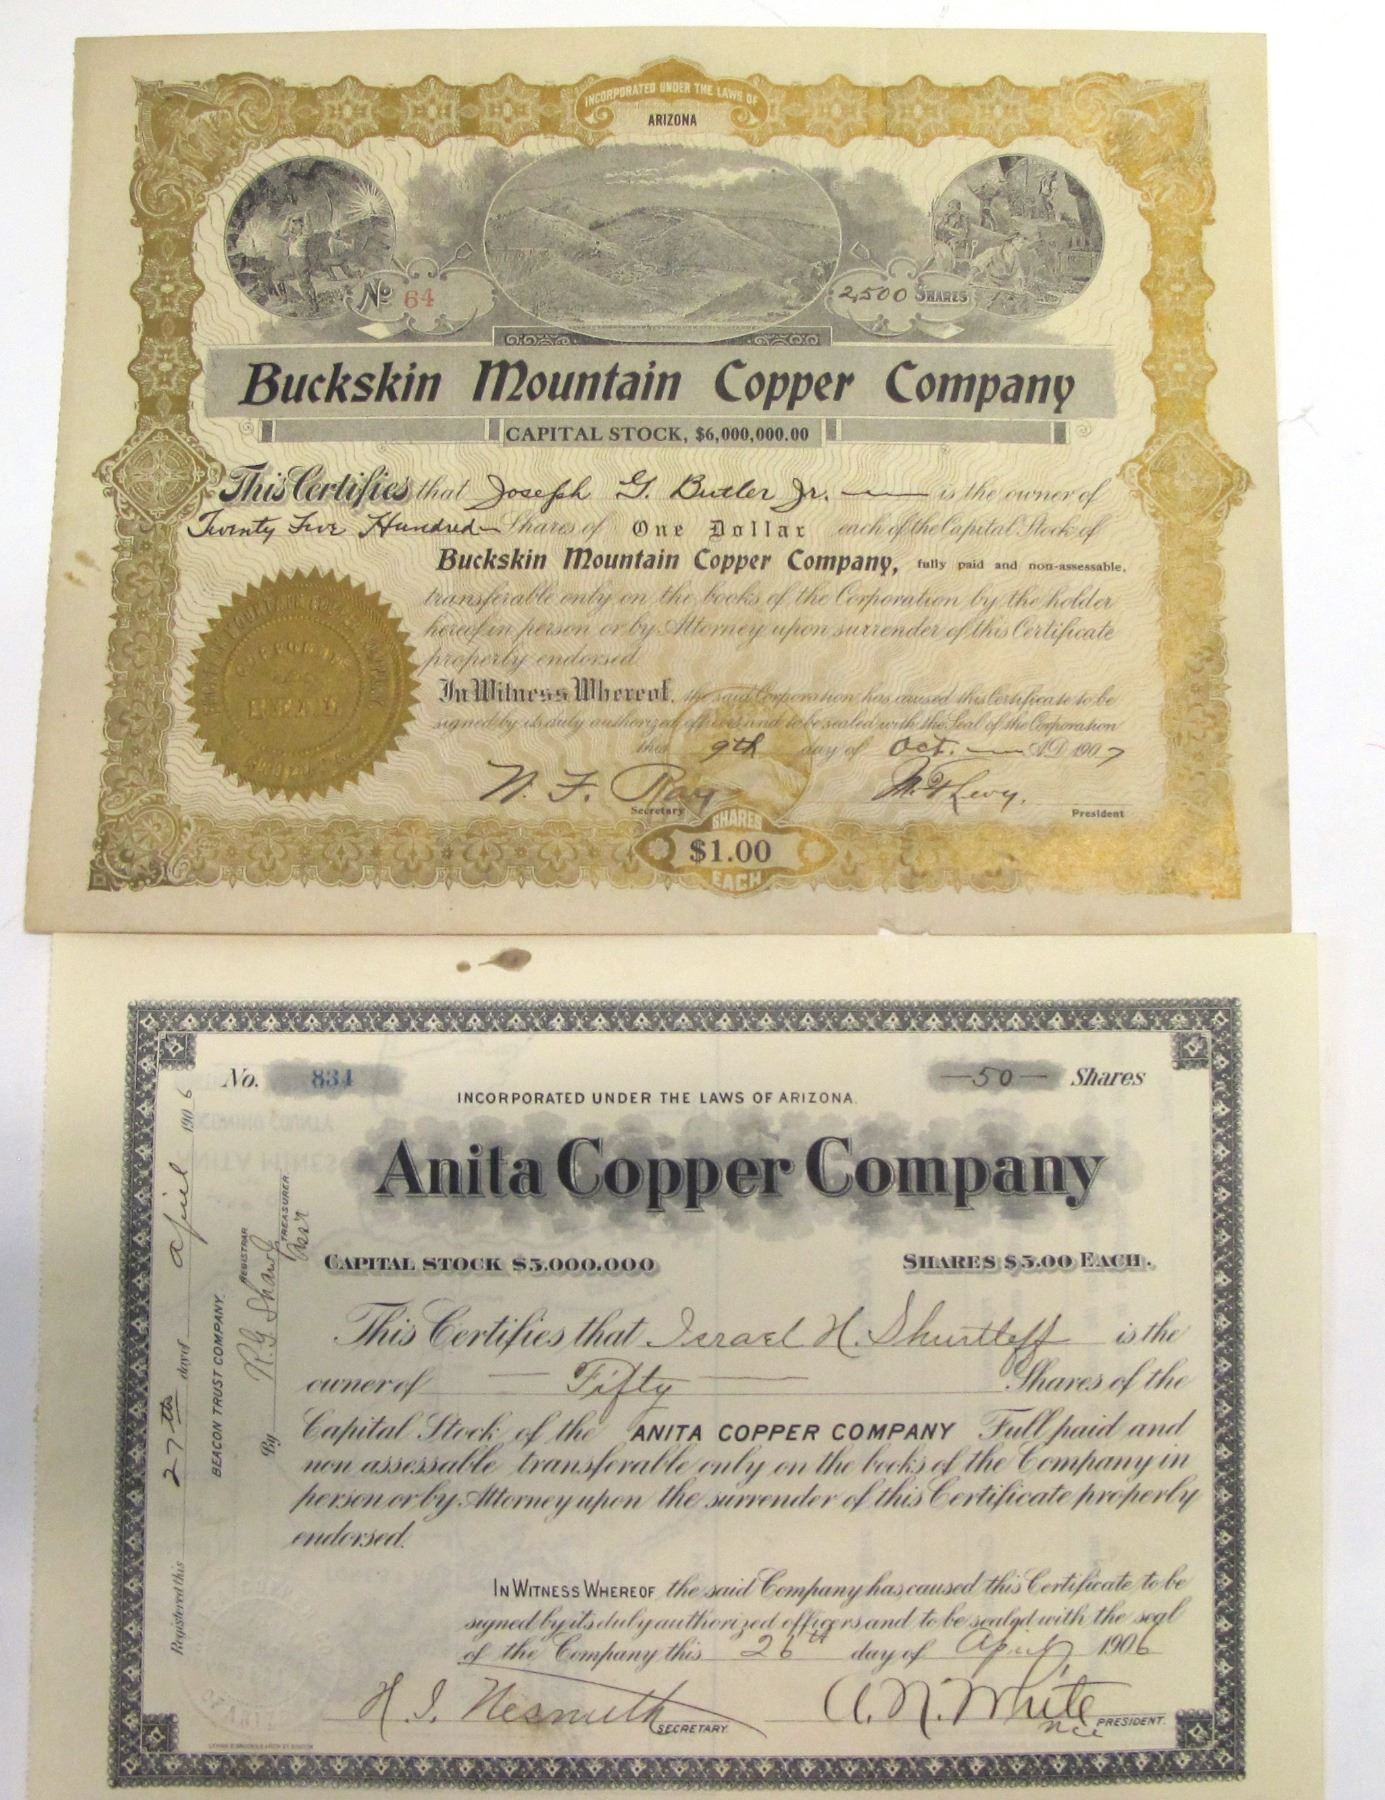 INCORPORATED UNDER THE LAWS OF
ARIZONA
No 64
2,500 SHARES
Buckskin Mountain Copper Company
CAPITAL STOCK, $6,000,000.00
This Certifies that Joseph G. Butler Jr. is the owner of
Twenty Five Hundred Shares of One Dollar each of the Capital Stock of
Buckskin Mountain Copper Company, fully paid and non-assessable,
transferable only on the books of the Corporation by the holder
hereof in person or by Attorney upon surrender of this Certificate
properly endorsed
In Witness Whereof, the said Corporation has caused this Certificate to be
signed by its duly authorized officers and to be sealed with the Seal of the Corporation
this 9th day of Oct. A.D. 1907
W. F. Ray
Secretary
Levy.
President
SHARES
$1.00
EACH
No. 834
—50— Shares
INCORPORATED UNDER THE LAWS OF ARIZONA.
Anita Copper Company
CAPITAL STOCK $5.000.000
SHARES $5.00 EACH.
This Certifies that Israel H. Shurtleff is the
owner of — Fifty — Shares of the
Capital Stock of the ANITA COPPER COMPANY Full paid and
non assessable transferable only on the books of the Company in
person or by Attorney upon the surrender of this Certificate properly
endorsed.
IN WITNESS WHEREOF the said Company has caused this Certificate to be
signed by its duly authorized officers and to be sealed with the seal
of the Company this 26th day of April 1906
H. I. Nesmuth
SECRETARY.
A. N. White
Vice PRESIDENT.
Registered this 27th day of April 1906
BEACON TRUST COMPANY.
REGISTRAR
By R. G. Shaw Jr
Ass't TREASURER